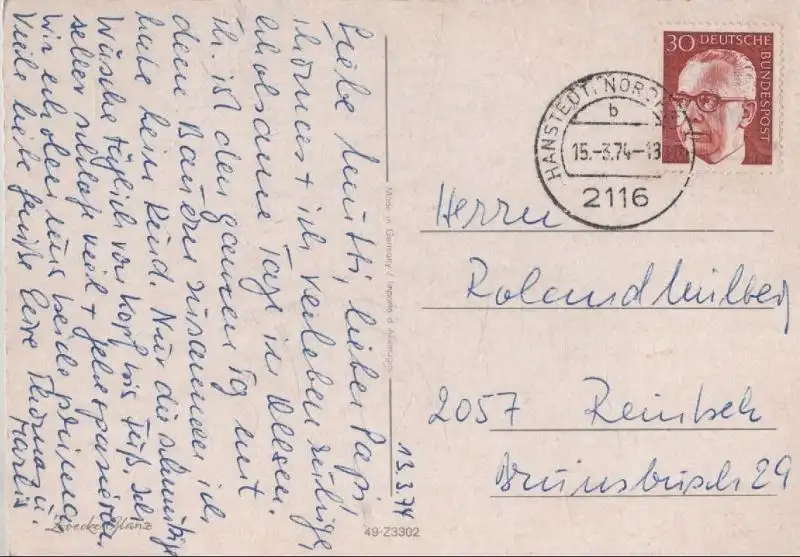 Liebe Mutti, lieber Papi,
Thomas + ich verleben ruhige,
erholsame Tage in Ollsen.
Th. ist den ganzen Tag mit
dem Bauern zusammen, ich
habe kein Kind. Nur die schmutzige
Wäsche täglich von Kopf bis Fuß. Ich
selber schlafe viel + gehe spazieren.
Wir erholen uns beide prima.
Viele liebe Grüße Eure Thomas u.
Marlis
13.3.74
49-Z3302
Made in Germany / Importé d'Allemagne
30 DEUTSCHE BUNDESPOST
HANSTEDT, NORDH
b
15.-3.74-18
2116
Herrn
Roland Milberg
2057 Reinbek
Brunsbusch 29